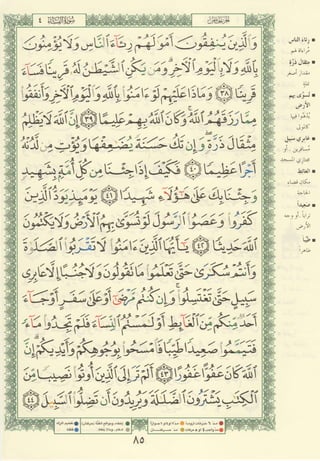 سُورَةُ النِّسَاءِ ٤
وَٱلَّذِينَ يُنفِقُونَ أَمْوَٰلَهُمْ رِئَآءَ ٱلنَّاسِ وَلَا يُؤْمِنُونَ
بِٱللَّهِ وَلَا بِٱلْيَوْمِ ٱلْءَاخِرِ وَمَن يَكُنِ ٱلشَّيْطَٰنُ لَهُۥ قَرِينًا فَسَآءَ
قَرِينًا ٣٨ وَمَاذَا عَلَيْهِمْ لَوْ ءَامَنُوا۟ بِٱللَّهِ وَٱلْيَوْمِ ٱلْءَاخِرِ وَأَنفَقُوا۟
مِمَّا رَزَقَهُمُ ٱللَّهُ وَكَانَ ٱللَّهُ بِهِمْ عَلِيمًا ٣٩ إِنَّ ٱللَّهَ لَا يَظْلِمُ
مِثْقَالَ ذَرَّةٍ وَإِن تَكُ حَسَنَةً يُضَٰعِفْهَا وَيُؤْتِ مِن لَّدُنْهُ
أَجْرًا عَظِيمًا ٤٠ فَكَيْفَ إِذَا جِئْنَا مِن كُلِّ أُمَّةٍۭ بِشَهِيدٍ
وَجِئْنَا بِكَ عَلَىٰ هَٰٓؤُلَآءِ شَهِيدًا ٤١ يَوْمَئِذٍ يَوَدُّ ٱلَّذِينَ
كَفَرُوا۟ وَعَصَوُا۟ ٱلرَّسُولَ لَوْ تُسَوَّىٰ بِهِمُ ٱلْأَرْضُ وَلَا يَكْتُمُونَ
ٱللَّهَ حَدِيثًا ٤٢ يَٰٓأَيُّهَا ٱلَّذِينَ ءَامَنُوا۟ لَا تَقْرَبُوا۟ ٱلصَّلَوٰةَ
وَأَنتُمْ سُكَٰرَىٰ حَتَّىٰ تَعْلَمُوا۟ مَا تَقُولُونَ وَلَا جُنُبًا إِلَّا عَابِرِى
سَبِيلٍ حَتَّىٰ تَغْتَسِلُوا۟ وَإِن كُنتُم مَّرْضَىٰٓ أَوْ عَلَىٰ سَفَرٍ أَوْ جَآءَ
أَحَدٌ مِّنكُم مِّنَ ٱلْغَآئِطِ أَوْ لَٰمَسْتُمُ ٱلنِّسَآءَ فَلَمْ تَجِدُوا۟ مَآءً
فَتَيَمَّمُوا۟ صَعِيدًا طَيِّبًا فَٱمْسَحُوا۟ بِوُجُوهِكُمْ وَأَيْدِيكُمْ إِنَّ
ٱللَّهَ كَانَ عَفُوًّا غَفُورًا ٤٣ أَلَمْ تَرَ إِلَى ٱلَّذِينَ أُوتُوا۟ نَصِيبًا مِّنَ
ٱلْكِتَٰبِ يَشْتَرُونَ ٱلضَّلَٰلَةَ وَيُرِيدُونَ أَن تَضِلُّوا۟ ٱلسَّبِيلَ ٤٤
رئاء الناس
مثقال ذرة
الأرض
عابري سبيل
الغائط
صعيدا
طيبا
٨٥